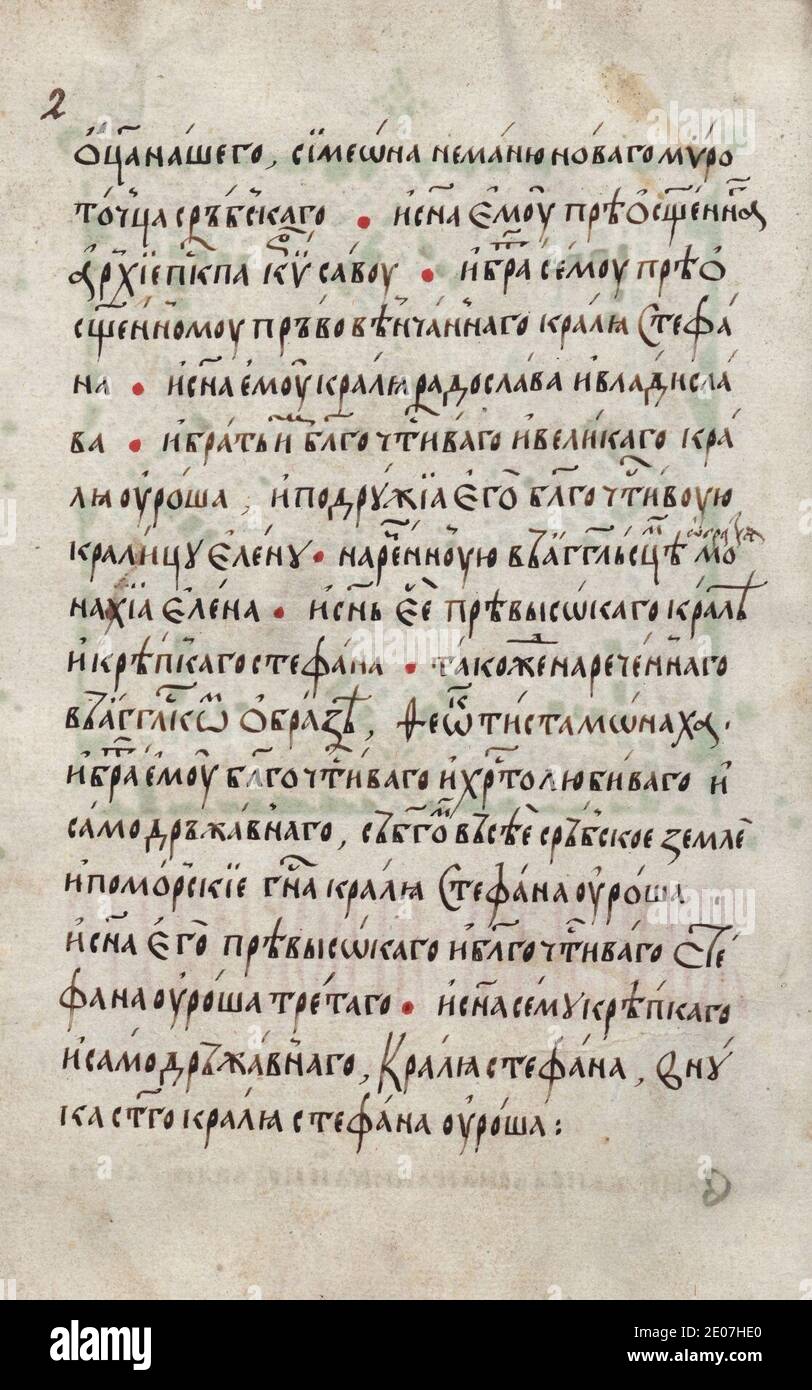 2
ѻц҃а на́шего, сѵмеѡ́на нема́ню но́ваго мѵ́ро
то́чца ср҄ъбскаго • и҆ сн҃а є҆моу̀ прѣѻ҆сщ҃е́нна
а҆рхїепⷭ҇кпа кѵⷬ҇ са́воу • и҆ бра́та семоу прѣѻ҆
сщ҃е́нномоу пръвовѣнча́ннаго кралꙗ Стефа́
на • и҆ сн҃а є҆моу̀ кралꙗ радосла́ва и҆ влади́сла
ва • и҆ бра́тьи бл҃гочⷭ҇ти́ваго и҆ вели́каго кра́
лꙗ оу҆ро́ша, и҆ подрꙋ́жїа є҆го̀ бл҃гочⷭ҇ти́воую
крали́цꙋ є҆ле́нꙋ • наре́нноую въ а҆́гг҃льсцѣⷨ мо
на́хїа є҆ле́на • и҆ сн҃ь є҆ѐ прѣвысѡ́каго кра́лꙗ
и҆ крѣ́пкаго стефа́на • та́кожⷣе нарече́ннаго
въ а҆́гг҃лскѡⷨ ѻ҆́бразѣ, Ѳеѡ́ктиста мѡна́ха.
и҆ бра́та є҆моу̀ бл҃гочⷭ҇ти́ваго и҆ хрⷭ҇толюби́ваго и҆
самодръжа́внаго, съ бг҃оⷨ въсѐе сръ́бское землѐ
и҆ помо́рскїе гн҃а кралꙗ Стефа́на оу҆ро́ша
и҆ сн҃а є҆го̀ прѣвысѡ́каго и҆ бл҃гочⷭ҇ти́ваго Сте́
фана оу҆ро́ша тре́таго • и҆ сн҃а семꙋ крѣ́пкаго
и҆ самодръжа́внаго, Кра́лꙗ стефа́на, внꙋ́
ка ст҃го кралꙗ стефа́на оу҆ро́ша:
alamy
Image ID: 2E07HE0
www.alamy.com